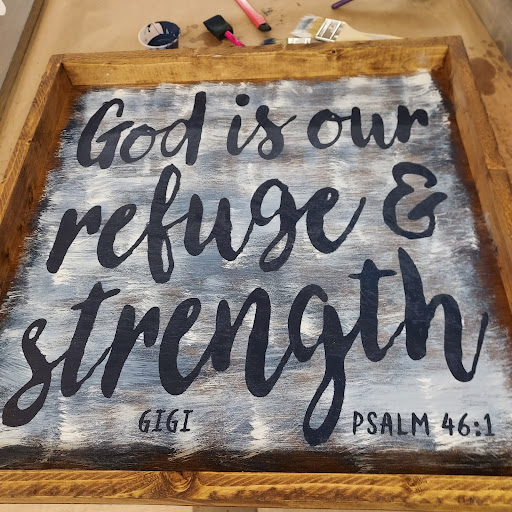 God is our
refuge &
strength
GIGI PSALM 46:1